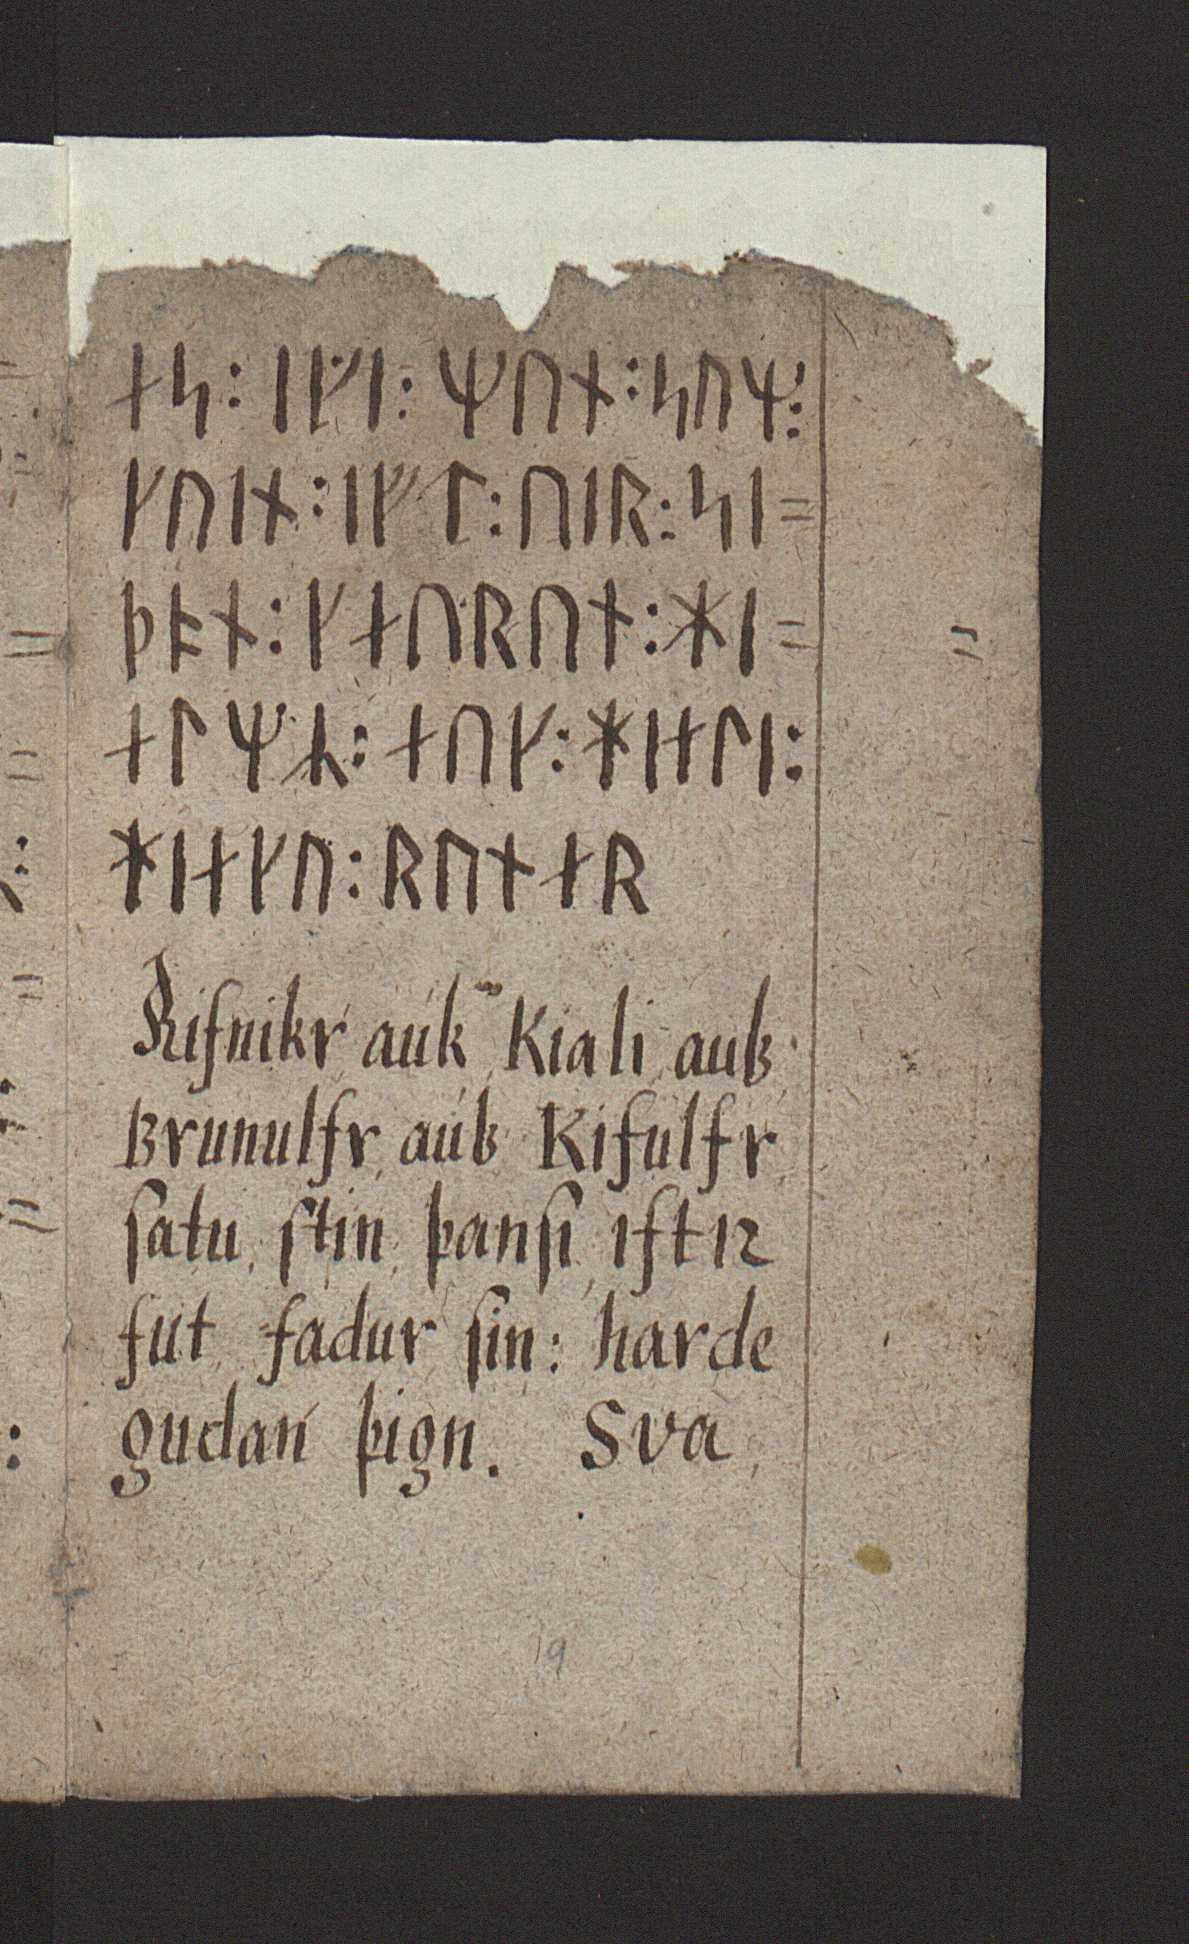 ᛅᛋ: ᛁᚠᛁ: ᛘᚢᚾ:ᛋᚢᛘ:
ᚴᚢᛁᚾ:ᛁᚠᛚ:ᚢᛁᚱ:ᛋᛁ=
ᚦᚬᚾ:ᚴᛅᚢᚱᚢᚾ:ᚼᛁ=
ᛅᛚᛘᛦ: ᛅᚢᚴ:ᚼᛁᛅᛚᛁ:
ᚼᛁᛅᚴᚢ:ᚱᚢᚾᛅᚱ
Kiſnikr auk Kiali auk
Brunulfr auk Kifulfr
ſatu ſtin þanſi iftiR
fut fadur ſin: harde
gudan þign. Sva
19